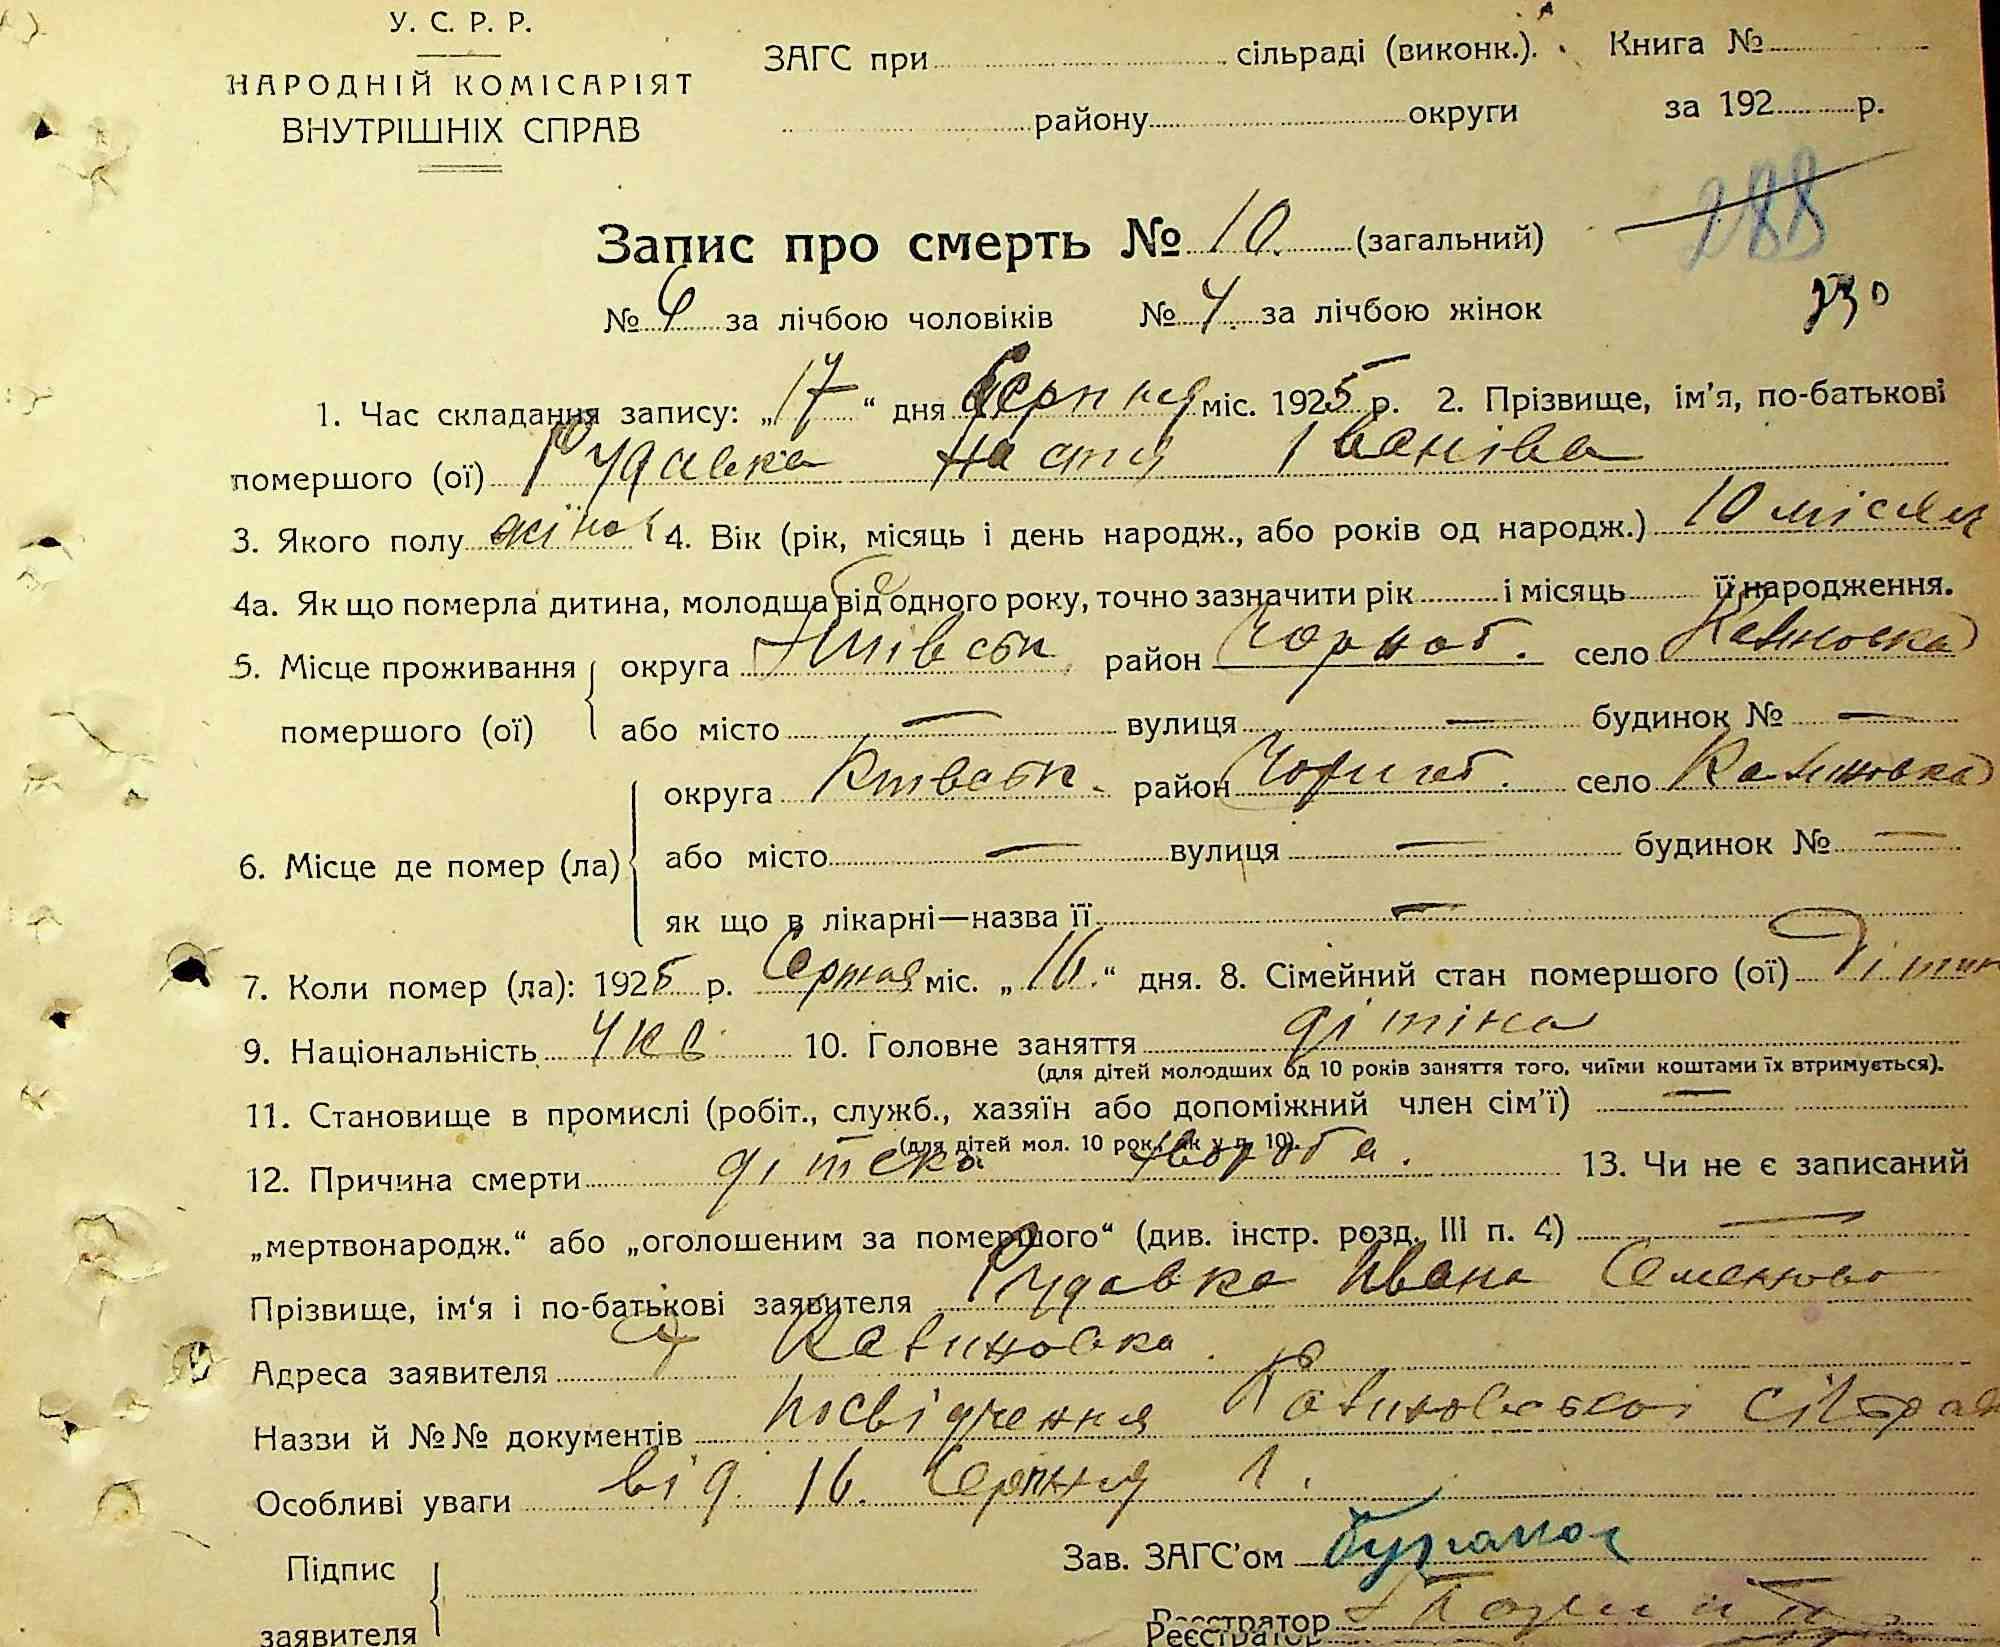 У. С. Р. Р.
НАРОДНІЙ КОМІСАРІЯТ
ВНУТРІШНІХ СПРАВ
ЗАГС при сільраді (виконк.). Книга №
району округи за 192 р.
288
Запис про смерть № 10. (загальний)
230
№ 6 за лічбою чоловіків № 4. за лічбою жінок
1. Час складання запису: „17“ дня Серпня міс. 1925 р. 2. Прізвище, ім'я, по-батькові
помершого (ої) Рудавка Настя Іваніва
3. Якого полу жіно 4. Вік (рік, місяць і день народж., або років од народж.) 10 місяц
4а. Як що померла дитина, молодща від одного року, точно зазначити рік і місяць її народження.
5. Місце проживання округа район Чорноб. село Калиновка
помершого (ої) або місто — вулиця — будинок № —
округа Київськ. район Чорноб. село Калиновка
6. Місце де помер (ла) або місто — вулиця — будинок № —
як що в лікарні—назва її —
7. Коли помер (ла): 1925 р. Серпня міс. „16.“ дня. 8. Сімейний стан помершого (ої) Дітин
9. Національність Укр 10. Головне заняття дітіна
(для дітей молодших од 10 років заняття того, чиїми коштами їх втримується).
11. Становище в промислі (робіт., служб., хазяїн або допоміжний член сім'ї) —
(для дітей мол. 10 рок. як у п. 10).
12. Причина смерти дітска хвороба. 13. Чи не є записаний
„мертвонародж.“ або „оголошеним за помершого“ (див. інстр. розд. III п. 4) —
Прізвище, ім'я і по-батькові заявителя Рудавка Ивана Семенова
Адреса заявителя С Калиновка.
Назви й №№ документів посвідчення Калиновської сільрад
Особливі уваги від 16. Серпня
Підпис
заявителя
Зав. ЗАГС'ом
Реєстратор